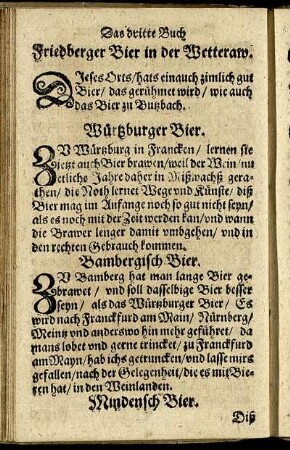 Das dritte Buch
Friedberger Bier in der Wetteraw.
DJeses Orts/hats ein auch zimlich gut
Bier/ das gerühmet wird/ wie auch
das Bier zu Butzbach.
Würtzburger Bier.
ZV Würtzburg in Francken/ lernen sie
jetzt auch Bier brawen/weil der Wein/nu
etliche Jahre daher in Mißwachß gera-
then/ die Noth lernet Wege vnd Künste/ diß
Bier mag im Anfange noch so gut nicht seyn/
als es noch mit der Zeit werden kan/vnd wann
die Brawer lenger damit vmbgehen/ vnd in
den rechten Gebrauch kommen.
Bambergisch Bier.
ZV Bamberg hat man lange Bier ge-
brawet/ vnd soll dasselbige Bier besser
seyn/ als das Würtzburger Bier/ Es
wird nach Franckfurd am Main/ Nürnberg/
Meintz vnd anderswo hin mehr geführet/ da
mans lobet vnd gerne trincket/ zu Franckfurd
am Mayn/ hab ichs getruncken/ vnd lasse mirs
gefallen/nach der Gelegenheit/die es mit Bie-
ren hat/ in den Weinlanden.
Mindensch Bier.
Diß